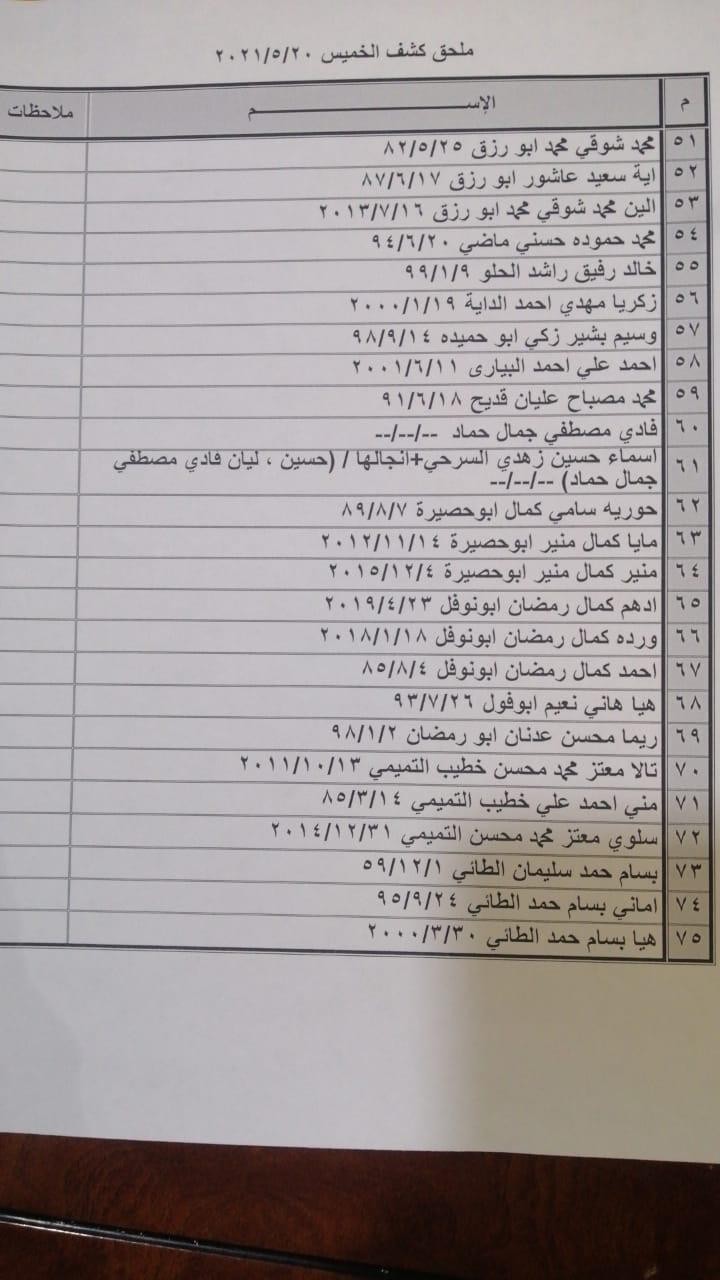 ملحق كشف الخميس ٢٠٢١/٥/٢٠
م الإســـــــــــــــم ملاحظات
٥١ محمد شوقي محمد ابو رزق ٨٢/٥/٢٥
٥٢ اية سعيد عاشور ابو رزق ٨٧/٦/١٧
٥٣ الين محمد شوقي محمد ابو رزق ٢٠١٣/٧/١٦
٥٤ محمد حموده حسني ماضي ٩٤/٦/٢٠
٥٥ خالد رفيق راشد الحلو ٩٩/١/٩
٥٦ زكريا مهدي احمد الداية ٢٠٠٠/١/١٩
٥٧ وسيم بشير زكي ابو حميده ٩٨/٩/١٤
٥٨ احمد علي احمد البيارى ٢٠٠١/٦/١١
٥٩ محمد مصباح عليان قديح ٩١/٦/١٨
٦٠ فادي مصطفي جمال حماد --/--/--
٦١ اسماء حسين زهدي السرحي+انجالها / (حسين ، ليان فادي مصطفي
جمال حماد) --/--/--
٦٢ حوريه سامي كمال ابوحصيرة ٨٩/٨/٧
٦٣ مايا كمال منير ابوحصيرة ٢٠١٢/١١/١٤
٦٤ منير كمال منير ابوحصيرة ٢٠١٥/١٢/٤
٦٥ ادهم كمال رمضان ابونوفل ٢٠١٩/٤/٢٣
٦٦ ورده كمال رمضان ابونوفل ٢٠١٨/١/١٨
٦٧ احمد كمال رمضان ابونوفل ٨٥/٨/٤
٦٨ هيا هاني نعيم ابوفول ٩٣/٧/٢٦
٦٩ ريما محسن عدنان ابو رمضان ٩٨/١/٢
٧٠ تالا معتز محمد محسن خطيب التميمي ٢٠١١/١٠/١٣
٧١ مني احمد علي خطيب التميمي ٨٥/٣/١٤
٧٢ سلوي معتز محمد محسن التميمي ٢٠١٤/١٢/٣١
٧٣ بسام حمد سليمان الطائي ٥٩/١٢/١
٧٤ اماني بسام حمد الطائي ٩٥/٩/٢٤
٧٥ هيا بسام حمد الطائي ٢٠٠٠/٣/٣٠